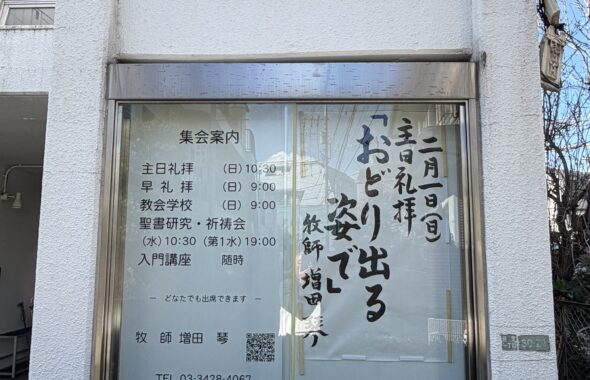 集会案内
主日礼拝 (日) 10:30
早礼拝 (日) 9:00
教会学校 (日) 9:00
聖書研究・祈祷会
(水) 10:30 (第1水) 19:00
入門講座 随時
― どなたでも出席できます ―
牧師 増田 琴
TEL 03-3428-4067
二月一日(日)
主日礼拝
「おどり出る
姿で」
牧師 増田 琴